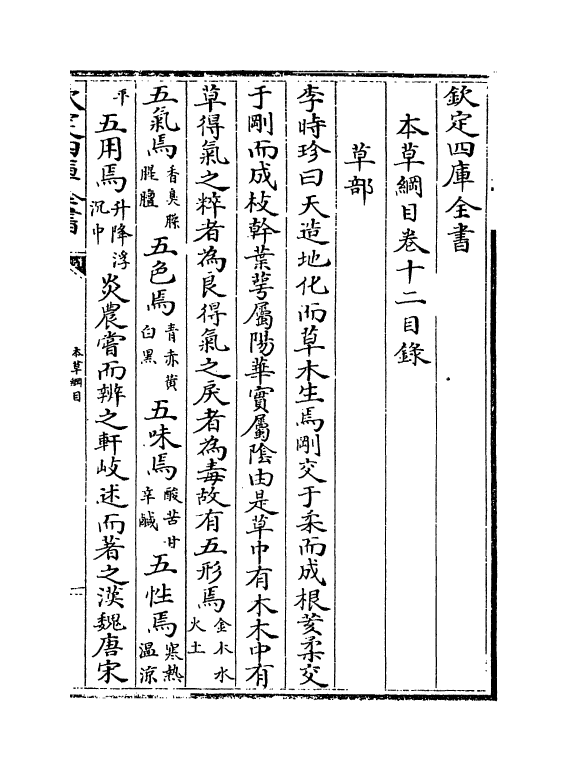 欽定四庫全書
本草綱目卷十二目錄
草部
李時珍曰天造地化而草木生焉剛交于柔而成根荄柔交
于剛而成枝幹葉萼屬陽華實屬陰由是草中有木木中有
草得氣之粹者為良得氣之戾者為毒故有五形焉金木水火土
五氣焉香臭臊腥膻五色焉青赤黄白黑五味焉酸苦甘辛鹹五性焉寒熱温涼
平五用焉升降浮沉中炎農嘗而辨之軒岐述而著之漢魏唐宋
欽定四庫全書
本草綱目